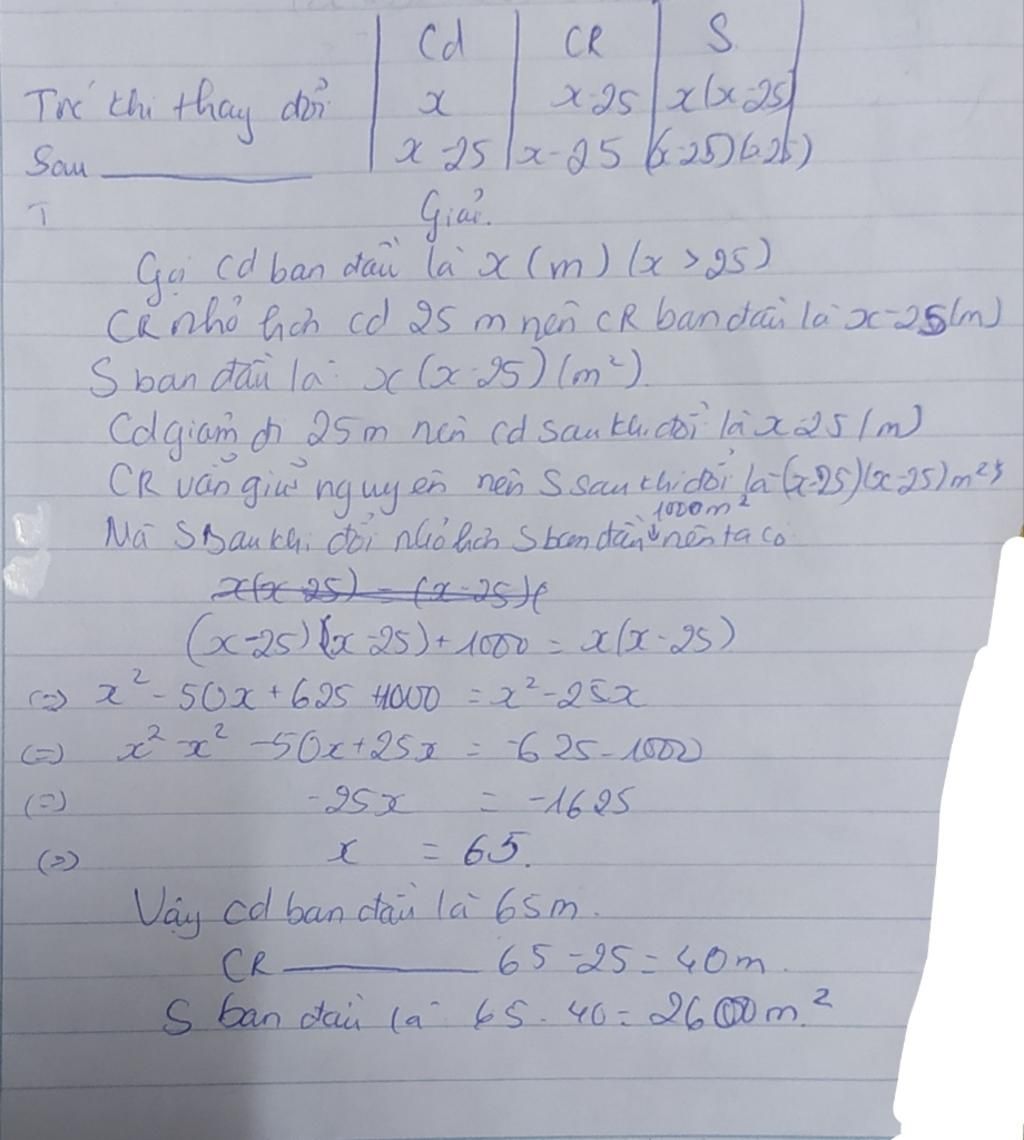 Cd CR S
Trc khi thay đổi x x-25 x(x-25)
Sau x-25 x-25 (x-25)(x-25)
T
Giải.
Gọi Cd ban đầu là x(m) (x>25)
CR nhỏ hơn cd 25 m nên CR ban đầu là x-25(m)
S ban đầu là x(x-25)(m²).
Cd giảm đi 25m nên cd sau kh. đổi là x-25(m)
CR vẫn giữ nguyên nên S sau khi đổi là (x-25)(x-25)m²
1000m²
Mà S sau kh. đổi nhỏ hơn S ban đầu nên ta có
x(x-25) = (x-25)(
(x-25)(x-25)+1000 = x(x-25)
(=) x²-50x+625+1000 = x²-25x
(=) x²-x²-50x+25x = -625-1000
(=) -25x = -1625
(=) x = 65.
Vậy cd ban đầu là 65m.
CR 65-25=40m.
S ban đầu là 65.40=2600m²